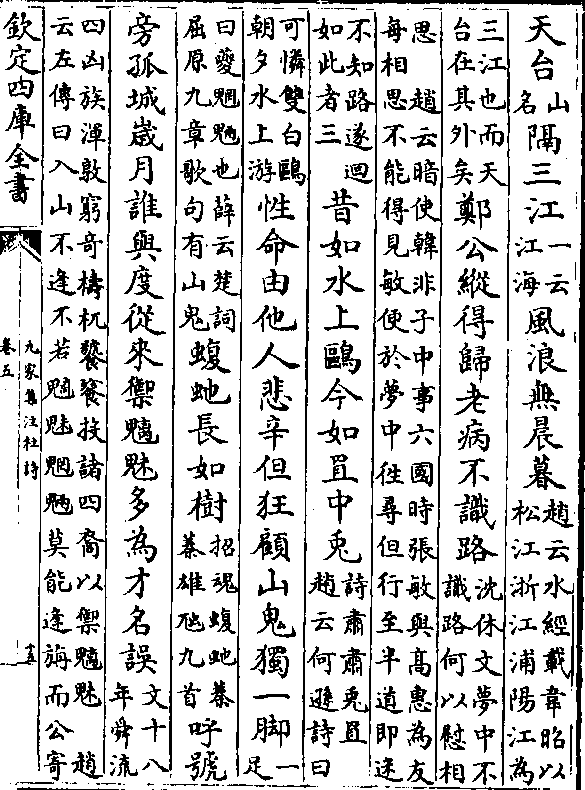 天台山名隔三江一云江海風浪無晨暮趙云水經載韋昭以松江浙江浦陽江為
三江也而天台在其外矣鄭公縱得歸老病不識路沈休文夢中不識路何以慰相
思趙云暗使韓非子中事六國時張敏與髙惠為友每相思不能得見敏便於夢中徃尋但行至半道即迷
不知路遂迴如此者三昔如水上鷗今如罝中兎詩肅肅兎罝趙云何遜詩曰
可憐雙白鷗朝夕水上游性命由他人悲辛但狂顧山鬼獨一脚一足
曰夔魍魎也薛云楚詞屈原九章歌句有山鬼蝮虵長如樹招魂蝮虵蓁蓁雄虺九首呼號
旁孤城嵗月誰與度從來禦魑魅多為才名誤文十八年舜流
四凶族渾敦窮竒檮杌饕餮投諸四裔以禦魑魅趙云左傳曰入山不逢不若魑魅魍魎莫能逢旃而公寄
欽定四庫全書
卷五
九家集注杜詩